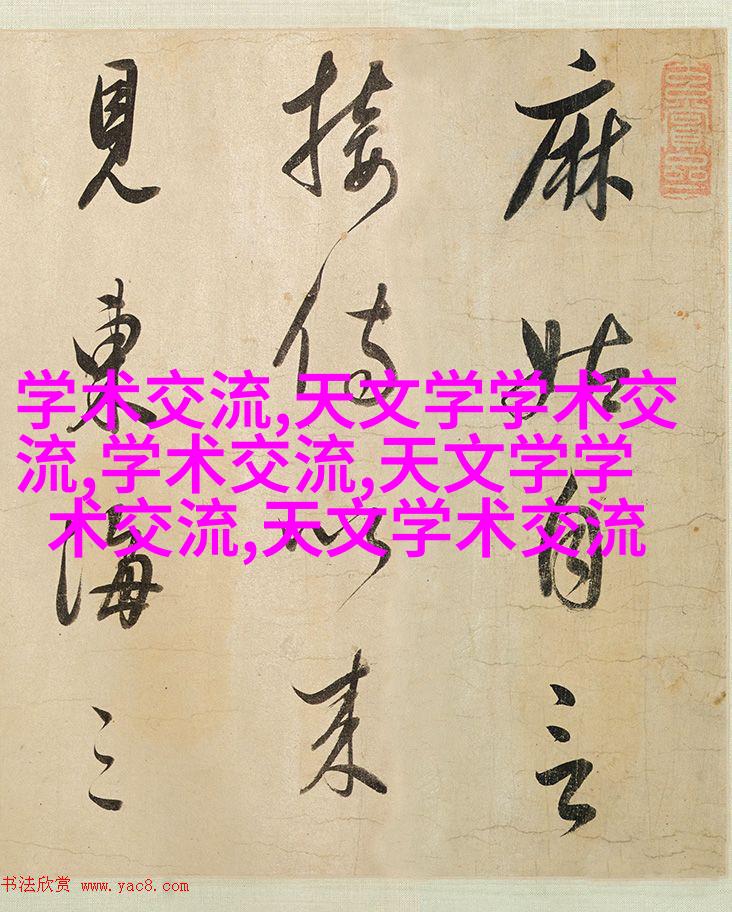 麻姑自言
接侍以来
見東海三
学术交流,天文学学术交
流,学术交流,天文学学
术交流,天文学术交流
书法欣赏 www.yac8.com